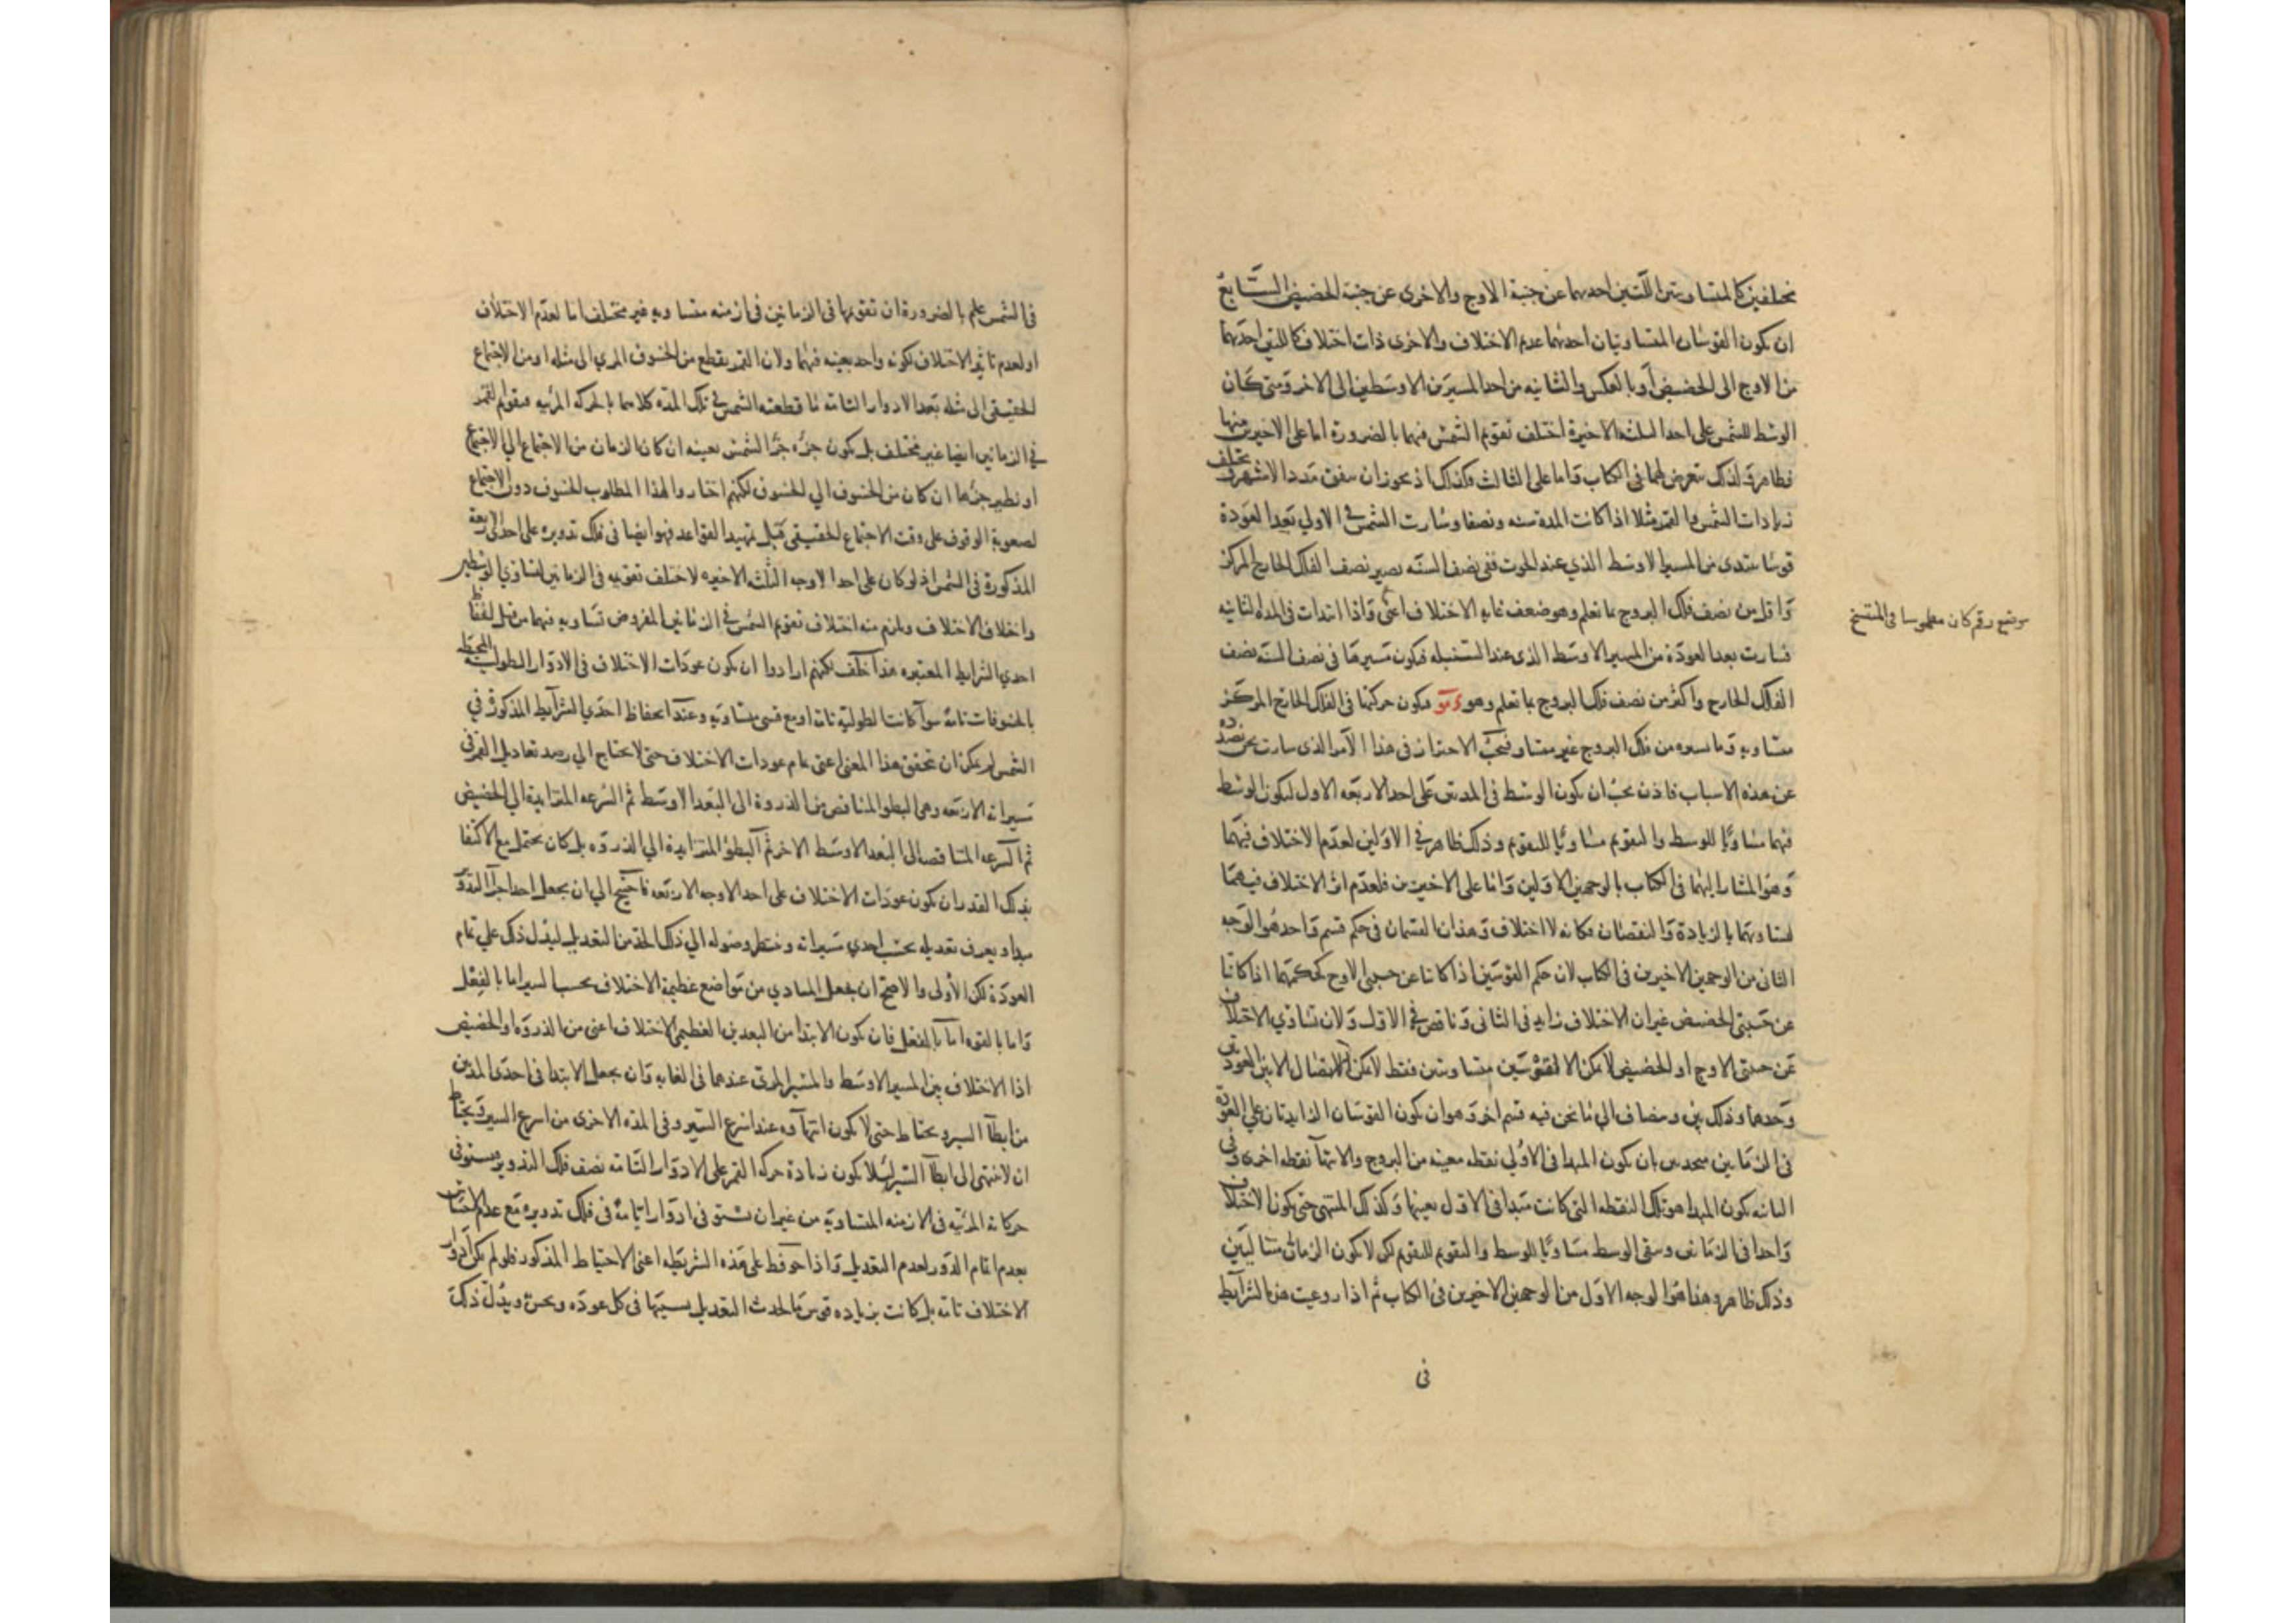 مختلفين كالمتساويتين اللتين احديهما عن جنبة الاوج والاخرى عن جنبة الحضيض السابع
ان يكون القوسان المتساويتان احديهما عديم الاختلاف والاخرى ذات اختلاف كاللتين احديهما
من الاوج الى الحضيض او بالعكس والثانيه من احد المسيرين الاوسطين الى الاخر ومتى كان
الوسط للشمس على احد الثلثة الاخيرة اختلف تقويم الشمس فيهما بالضرورة اما على الاخيرين منها
فظاهر ولذلك تعرض لهما فى الكتاب واما على الثالث فكذلك اذ يجوز ان
زيادات الشمس والقمر مثلا اذا كانت المدة سنه ونصفا وسارت الشمس فى الاولي بعد العودة
قوسا يبتدى من المسير الاوسط الذي عند الحوت ففى نصف السنه يصير نصف الفلك الخارج المركز
واقل من نصف فلك البروج بما تعلم وهو ضعف غايه الاختلاف اعنى واذا ابتدات فى المده الثانيه
فسارت بعد العودة من المسير الاوسط الذى عند السنبله فيكون مسيرها فى نصف السنه نصف
الفلك الخارج واكثر من نصف فلك البروج بما تعلم وهو فيكون حركتها فى الفلك الخارج المركز
متساويه وما تسيره من فلك البروج غير متساو فيجب الاحتراز فى هذا الامر الذى سارت
عن هذه الاسباب فاذن يجب ان يكون الوسط فى المدتين على احد الاربعه الاول ليكون الوسط
فيهما مساويا للوسط والتقويم مساويا للتقويم وذلك ظاهر فى الاولين لعدم الاختلاف فيهما
وهو المشار اليهما فى الكتاب بالوجهين الاولين واما على الاخيرين فلعدم اثر الاختلاف فيهما
لتساويهما بالزيادة والنقصان فكانه لا اختلاف وهذان القسمان فى حكم قسم واحد هو الوجه
الثانى من الوجهين الاخيرين فى الكتاب لان حكم القوسين اذا كانتا عن جنبتى الاوج كحكمهما اذا كانتا
عن جنبتى الحضيض غير ان الاختلاف زايد فى الثانى وناقص فى الاول ولان تساوي الاختلاف
عن جنبتى الاوج او الحضيض لا يمكن الا لقوسين متساويتين فقط
وحدها وذلك بين ومضاف الي ما نحن فيه قسم اخر وهو ان يكون القوسان الزايدتان علي العودة
فى الزمانين متحدتين بان يكون المبدا فى الاولي نقطه معينه من البروج والانتهآ نقطه اخرى وفى
الثانيه يكون المبدا هو تلك النقطه التى كانت مبدا فى الاول بعينها وكذلك المنتهى حتى يكون الاختلاف
واحدا فى الزمانين ويبقى الوسط مساويا للوسط والتقويم للتقويم لكن لا يكون الزمانان متتاليين
وذلك ظاهر وهذا هو الوجه الاول من الوجهين الاخيرين فى الكتاب ثم اذا روعيت هذه الشرآيط
فى
موضع رقم كان مطموسا فى المنتسخ
فى الشمس علم بالضرورة ان تقويمها فى الزمانين فى ازمنه متساويه غير مختلف اما لعدم الاختلاف
او لعدم تاثير الاختلاف لكونه واحد بعينه فيهما ولان القمر يقطع من الخسوف المرى الى مثله او من الاجتماع
الحقيقى الى مثله بعد الادوار التامه ما قطعته الشمس فى تلك المدة كلاهما بالحركه المرئيه فتقويم القمر
فى الزمانين ايضا غير مختلف بل يكون جزءه جزء الشمس بعينه ان كان الزمان من الاجتماع الي الاجتماع
او نظير جزءها ان كان من الخسوف الي الخسوف لكنهم اختاروا لهذا المطلوب الخسوف دون الاجتماع
لصعوبة الوقوف على وقت الاجتماع الحقيقى قبل تمهيد القواعد فهو ايضا فى فلك تدويره على احد الاربعة
المذكورة فى الشمس اذ لو كان على احد الاوجه الثلث الاخيره لاختلف تقويمه فى الزمانين لتساوي الوسطين
واختلاف الاختلاف ويلزم منه اختلاف تقويم الشمس فى الزمانين المفروض تساويه فيهما من قبل
احدي الشرايط المعتبره هذا خلف لكنهم ارادوا ان يكون عودات الاختلاف فى الادوار الطوليه
بالخسوفات تامه سوآ كانت الطوليه تامه او مع قسى متساويه وعند انحفاظ احدي الشرآيط المذكورة في
الشمس لم يمكن ان تحقق هذا المعنى اعنى تمام عودات الاختلاف حتى لا يحتاج الي رصد تعاديل القمر فى
مسيراته الاربعه وهى البطو المتناقص من الذروة الى البعد الاوسط ثم السرعه المتزايدة الي الحضيض
ثم السرعه المتناقصه الى البعد الاوسط الاخر ثم البطو المتزايدة الي الذروه بل كان يحتمل مع الاكتفا
بذلك القدر ان يكون عودات الاختلاف على احد الاوجه الاربعه فاحتيج الي ان يجعل احد اجزآ التدوير
مبدا ويعرف تعديله بحسب احدي مسيراته وينتظر وصوله الي ذلك الحد من التعديل ليدل ذلك علي تمام
العودة لكن الأولى والاصح ان يجعل المبادي من مواضع عظيمة الاختلاف بحسب المسير اما بالفعل
واما بالقوه اما بالفعل فان يكون الابتدا من البعدين العظيمى الاختلاف اعنى من الذروه او الحضيض
اذ الاختلاف بين المسير الاوسط والمسير المرئى عندهما فى الغايه وان يجعل الابتدا فى احدى المدتين
من ابطآ السير ويحتاط حتى لا يكون انتهآوه عند اسرع السير وفى المده الاخرى من اسرع السير ويحتاط
ان لا ينتهى الى ابطآ السير لئلا يكون زيادة حركه القمر على الادوار التامه نصف فلك التدوير ويستوفى
حركاته المرئيه فى الازمنه المتساويه من غير ان يستوفى ادوارا تامة فى فلك تدويره مع عدم
بعدم اتمام الدور لعدم التعديل واذا حوفظ على هذه الشريطه اعنى الاحتياط المذكور فلو لم يكن ادوار
الاختلاف تامه بل كانت بزياده قوس ما لحدث التعديل بسببها فى كل عوده ويحسن ويدل ذلك